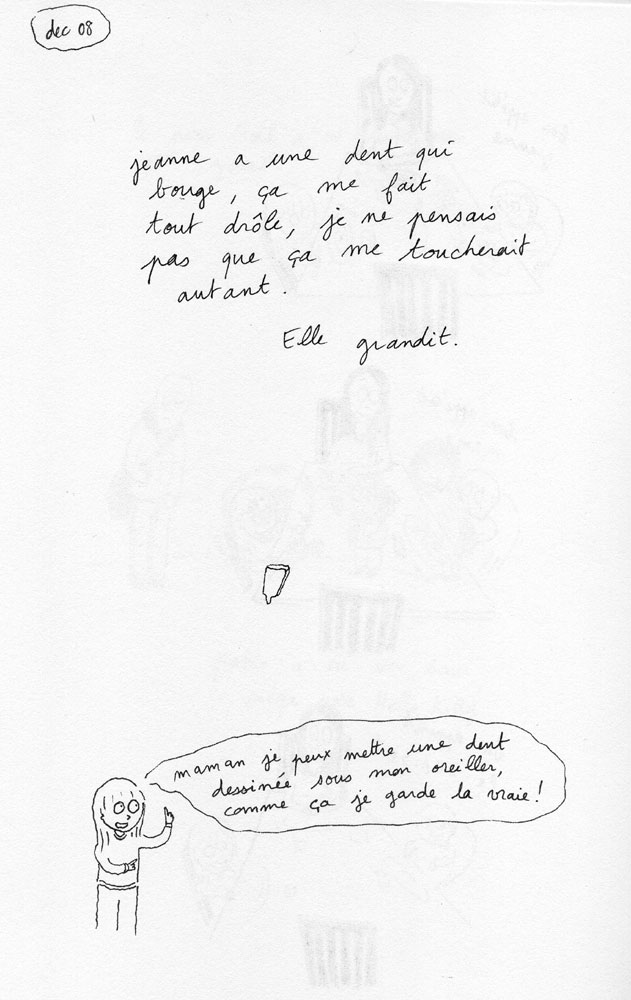 dec 08
jeanne a une dent qui
bouge, ça me fait
tout drôle, je ne pensais
pas que ça me toucherait
autant.
Elle grandit.
maman je peux mettre une dent
dessinée sous mon oreiller,
comme ça je garde la vraie!